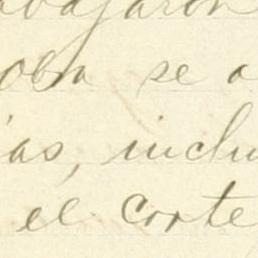 abajaron
oba se a
ías, inclu
el corte